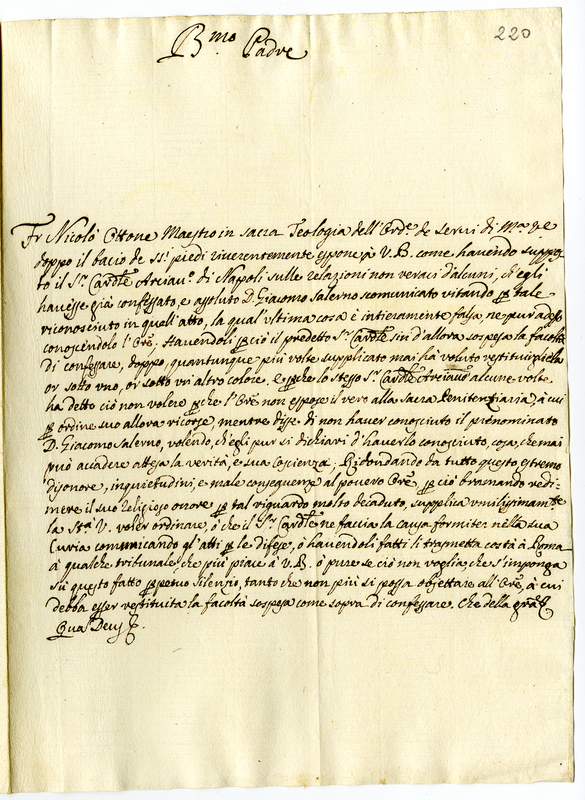 220
B.mo Padre
Fr Nicolò Ottone Maestro in sacra Teologia dell'Ord.e de Servi di M.a Ve
doppo il bacio de SS.i piedi riverentemente espone à V.B. come havendo suppo-
to il S.r Card.le Arciau.o di Napoli sulle relazioni non veraci d'alcuni, ch'egli
havesse già confessato, e assoluto D. Giacomo Salerno scomunicato vitando p tale
riconosciuto in quell'atto, la qual'ultima cosa è intieramente falsa, ne pur adesso
conoscendolo l'Ore. Havendoli p ciò il predetto S.r Card.le sin d'allora sospesa la facoltà
di confessare, doppo, quantunque più volte supplicato mai hà voluto restituirgliela
or sotto uno, or sotto un'altro colore, e p che lo stesso S.r Card.le Arciauo alcune volte
hà detto ciò non volere p che l'Ore non espose il vero alla Sacra Penitenziaria, à cui
p ordine suo allora ricorse, mentre disse di non haver conosciuto il prenominato
D. Giacomo Salerno, volendo, ch'egli pur si dichiari d'haverlo conosciuto, cosa, che mai
può accadere attesa la verità, e sua Coscienza; Ridondando da tutto questo, estremo
disonore, inquietudini, e male conseguenze al povero Ore. p ciò bramando redi-
mere il suo Religioso onore p tal riguardo molto decaduto, supplica umilissimam.te
la St.à V. voler ordinare, ò che il S.r Card.le ne faccia la causa formiter nella sua
Curia comunicando gl'atti p le difese, ò havendoli fatti li trametta costà à Roma
à qualche tribunale, che più piace à V.B. ò pure se ciò non voglia che s'imponga
sù questo fatto p petuo silenzio, tanto che non più si possa objettare all'Ore, à cui
debba esser restituita la facoltà sospesa come sopra di confessare. Che della gra &
Qua Deus &.